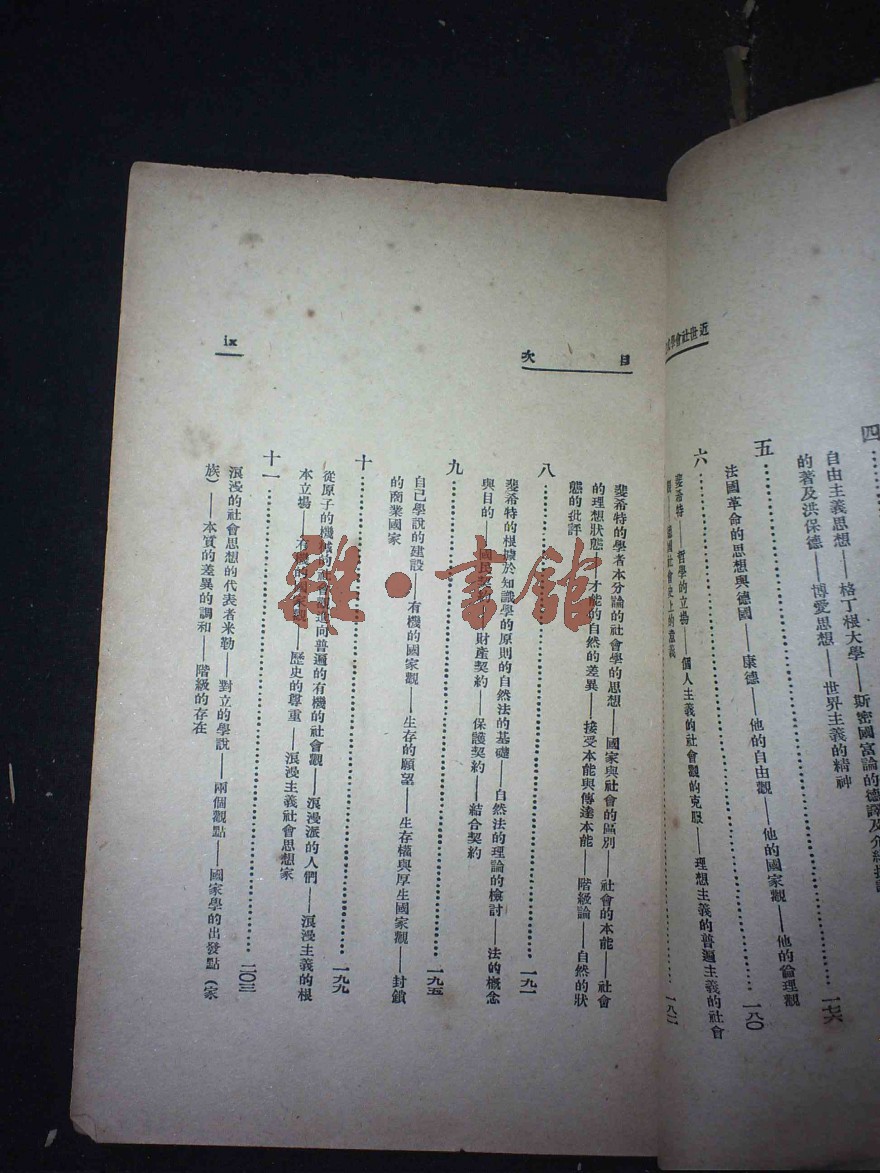 近世社會學
四
自由主義思想——格丁根大學——斯密國富論的德譯及介紹
的著及洪保德——博愛思想——世界主義的精神
五 一七六
法國革命的思想與德國——康德——他的自由觀——他的國家觀——他的倫理觀
六 一八〇
斐希特——哲學的立場——個人主義的社會觀的克服——理想主義的普遍主義的社會
觀——德國社會史上的意義
一八二
目次
斐希特的學者本分論的社會學的思想——國家與社會的區別——社會的本能——社會
的理想狀態——才能的自然的差異——接受本能與傳達本能——階級論——自然的狀
態的批評
八 一九一
斐希特的根據於知識學的原則的自然法的基礎——自然法的理論的檢討——法的概念
與目的——國民契約——財產契約——保護契約——結合契約
九 一九五
自己學說的建設——有機的國家觀——生存的願望——生存權與厚生國家觀——封鎖
的商業國家
十 一九九
從原子的機械的社會觀進向普遍的有機的社會觀——浪漫派的人們——浪漫主義的根
本立場——有機的國家觀——歷史的尊重——浪漫主義社會思想家
十一 二〇三
浪漫的社會思想的代表者米勒——對立的學說——兩個觀點——國家學的出發點（家
族）——本質的差異的調和——階級的存在
ix
雜·書館